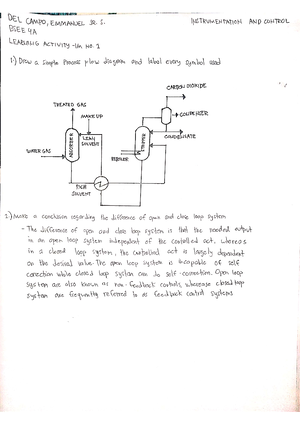 DEL CAMPO, EMMANUEL SR. S.
INSTRUMENTATION AND CONTROL
BSEE 4A
LEARNING ACTIVITY - LM NO. 1
1.) Draw a simple Process flow diagram and label every symbol used
CARBON DIOXIDE
TREATED GAS
CONDENSER
MAKE UP
CONDENSATE
LEAN
SOLVENT
ABSORBER
STRIPPER
REBOILER
WATER GAS
RICH
SOLVENT
2.) Make a conclusion regarding the difference of open and close loop system
- The difference of open and close loop system is that the needed output
in an open loop system independent of the controlled act, whereas
in a closed loop system, the controlled act is largely dependent
on the desired value. The open loop system is incapable of self
correction while closed loop system can do self-correction. Open loop
system are also known as non-feedback controls, whereas closed loop
system are frequently referred to as feedback control systems